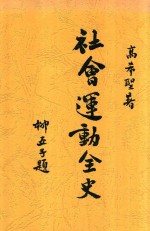 高希聖著
社會運動全史
柳亞子題